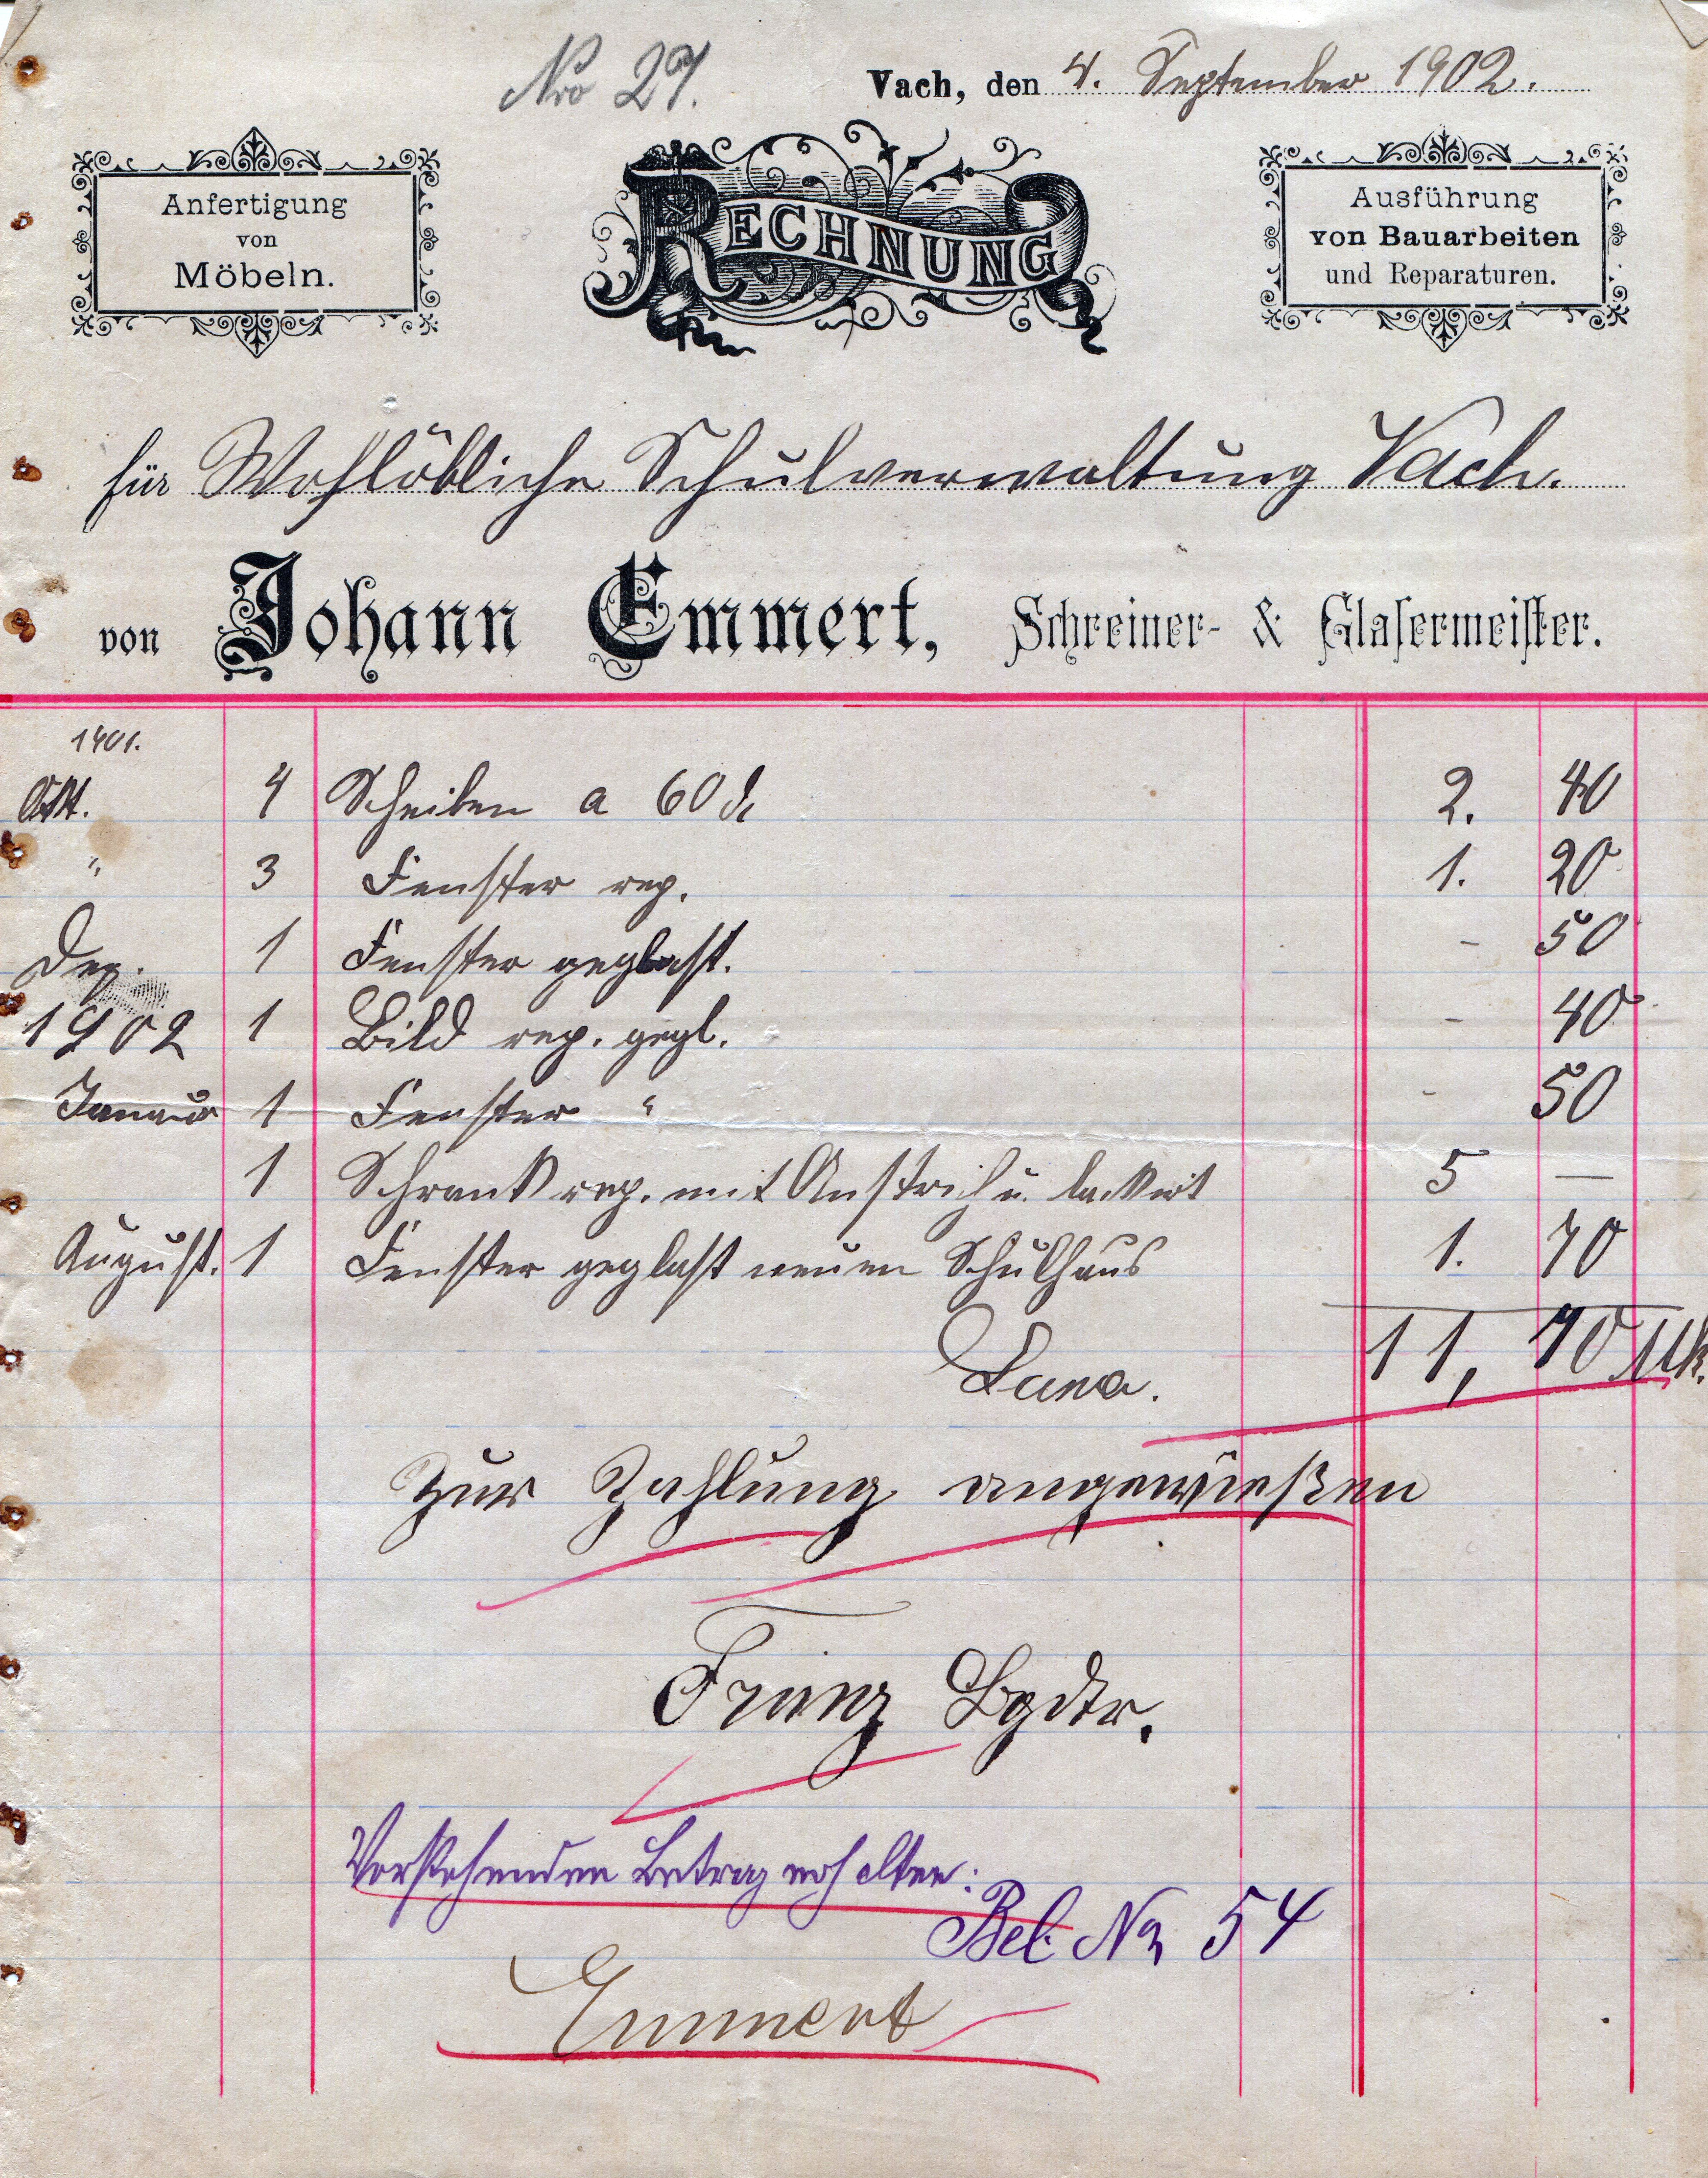 Nro 27.
Vach, den 4. September 1902.
Anfertigung
von
Möbeln.
RECHNUNG
Ausführung
von Bauarbeiten
und Reparaturen.
für Wohllöbliche Schulverwaltung Vach.
von Johann Emmert, Schreiner- & Glasermeister.
1901.
Okt. 4 Scheiben a 60 ₰ 2. 40
" 3 Fenster rep. 1. 20
Dez. 1 Fenster geglasst. - 50
1902 1 Bild rep. gegl. - 40
Januar 1 Fenster " - 50
1 Schrank rep. mit Anstrich u. lackirt 5 —
August. 1 Fenster geglast neuen Schulhaus 1. 70
11, 70 Mk.
Zur Zahlung angewießen
Vorstehenden Betrag erhalten:
Bel. No 54
Emmert